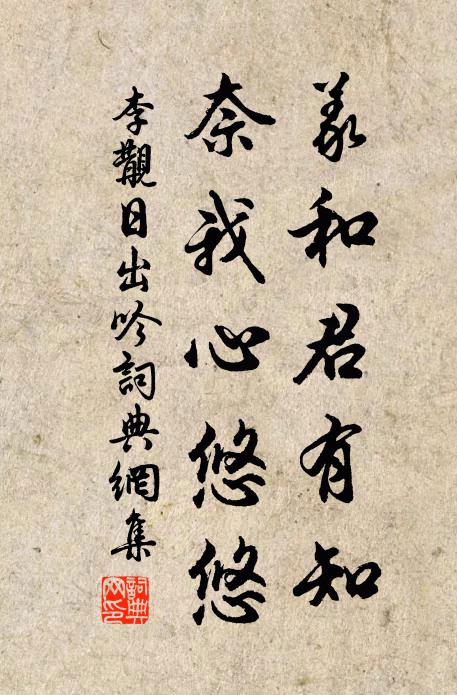 羲和君有知
奈我心悠悠
李觀日出吟詞典網集
詞典網印